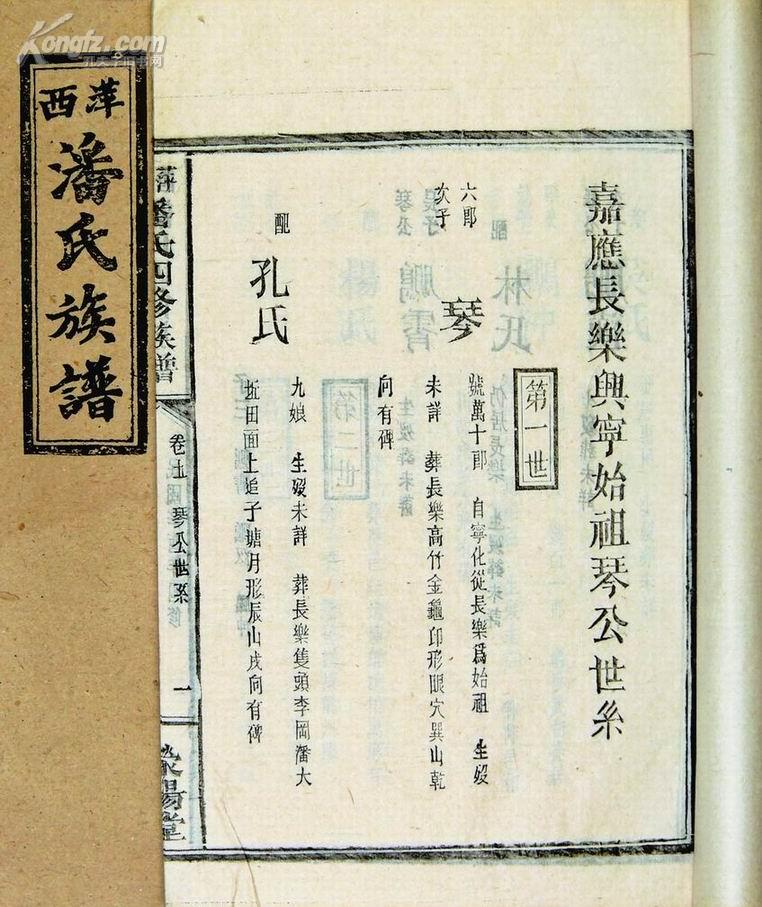 Kongfz.com
孔夫子旧书网
萍西
潘氏族譜
嘉應長樂興寧始祖琴公世系
第一世
六郎次子
琴
號萬十郎 自寧化從長樂爲始祖 生歿
未詳 葬長樂高竹金龜印形眼穴巽山乾
向有碑
配
孔氏
九娘 生歿未詳 葬長樂隻頭李岡潘大
坵田面上 子塘月形辰山戌向有碑
萍 潘氏四修族譜
卷 琴公世系
一
滎陽堂